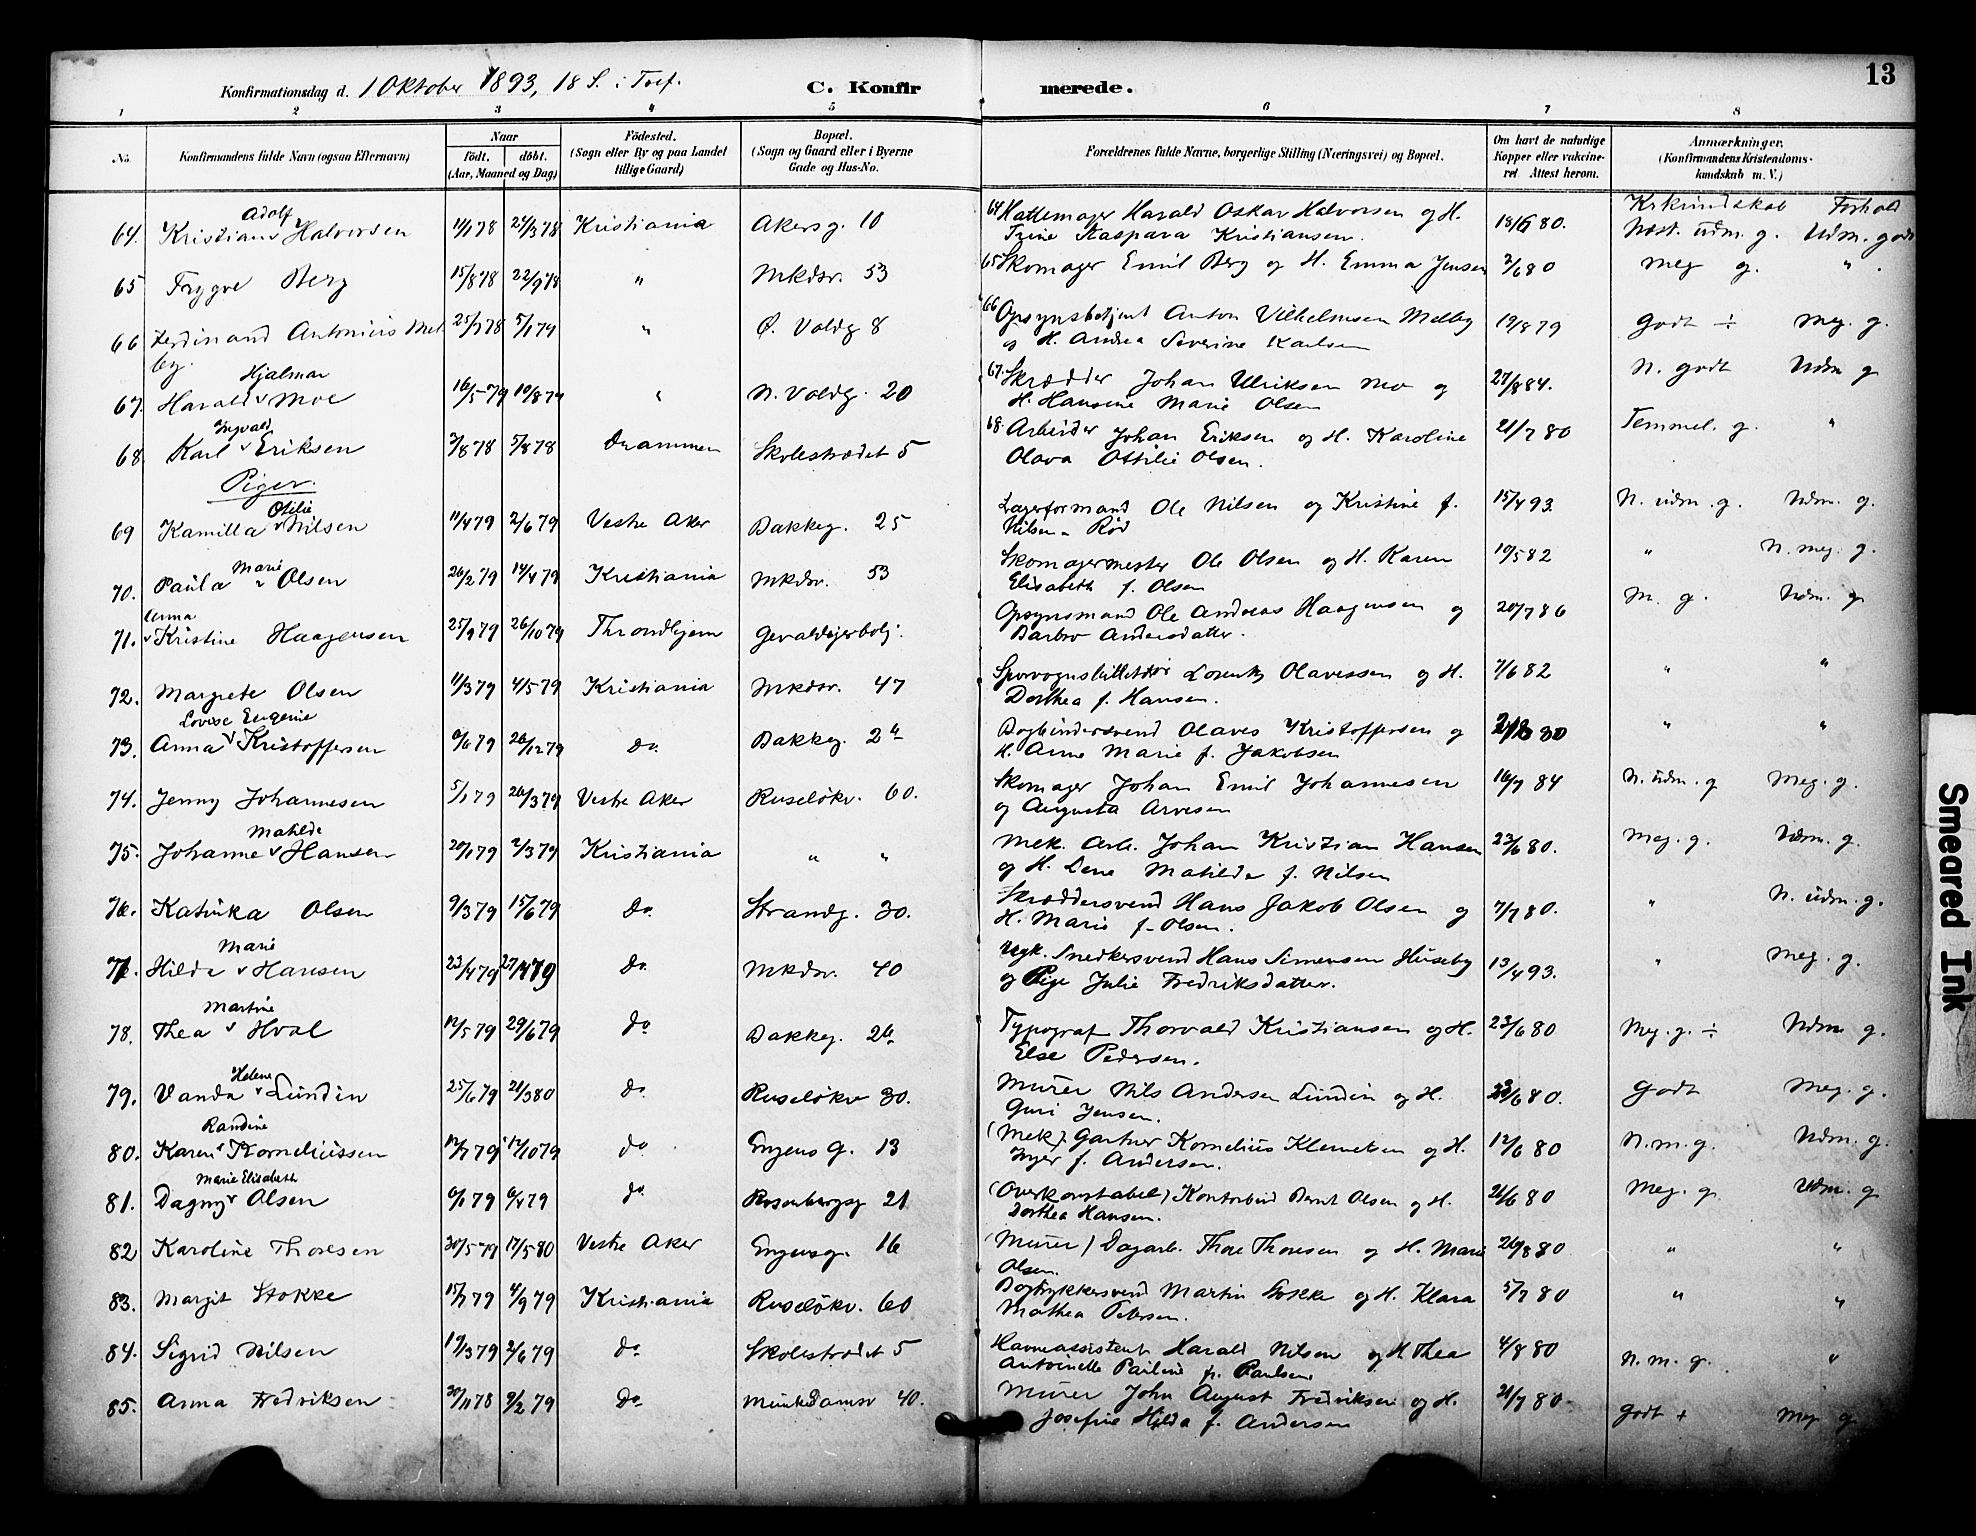 13
Konfirmationsdag d. 1 Oktober 1893, 18 S. i Tref.
C. Konfirmerede.
1 2 3 4 5 6 7 8
No. Konfirmandens fulde Navn (ogsaa Efternavn) Naar født. døbt. (Aar, Maaned og Dag) Fødested. (Sogn eller By og paa Landet tillige Gaard) Bopæl. (Sogn og Gaard eller i Byerne Gade og Hus-No. Forældrenes fulde Navne, borgerlige Stilling (Næringsvei) og Bopæl. Om havt de naturlige Kopper eller vakcineret. Attest herom. Anmærkninger. (Konfirmandens Kristendomskundskab m. V.)
Krkundskab Forhold
Adolf
64. Kristian v Halvorsen 11/1 78 24/3 78 Kristiania Akersg. 10 64 Hattemager Harald Oskar Halvorsen og H. 18/6 80. Næst. udm. g. Udm. godt
Trine Kaspara Kristiansen.
65 Trygve Berg 15/8 78 22/9 78 " Mkdsv. 53 65 Skomager Emil Berg og H. Emma Jensen 2/6 80 Meg g. "
66 Ferdinand Antonius Mel- 25/7 78 5/1 79 " Ø. Voldg 8 66 Opsynsbetjent Anton Vilhelmsen Melby 19/8 79 Godt ÷ Meg. g.
by. og H. Andrea Severine Karlsen
Hjalmar
67. Harald v Moe 16/5 79 10/8 79 " N. Voldg. 20 67. Skrædder Johan Ulriksen Mo og 27/8 84. N. godt Udm g
H. Hansine Marie Olsen
Ingvald
68. Karl v Eriksen 3/8 78 5/8 78 Drammen Skolestrædet 5 68. Arbeider Johan Eriksen og H. Karoline 21/7 80 Temmel. g. "
Olava Ottilie Olsen.
Piger.
Otilie
69 Kamilla v Nilsen 11/4 79 2/6 79 Vestre Aker Bakkeg. 25 Lagerformand Ole Nilsen og Kristine f. 15/4 93. N. udm. g. Udm. g.
Nilsen Rød
Marie
70. Paula v Olsen 26/2 79 14/4 79 Kristiania Mkdsv. 53 Skomagermester Ole Olsen og H. Karen 19/5 82 " N. meg. g.
Elisabeth f. Olsen
Anna
71. v Kristine Haagensen 25/9 79 26/10 79 Throndhjem Gevaldigerbolj. Opsynsmand Ole Andreas Haagensen og 20/7 86 M. g. Udm. g
Barbro Andersdatter.
72. Margrete Olsen 11/3 79 4/5 79 Kristiania Mkdsv. 47 Sporvognsbilletør Lorentz Olavessen og H. 7/6 82 " "
Dorthea f. Hansen.
Lovise Eugenie
73. Anna v Kristoffersen 6/6 79 26/12 79 Do. Bakkeg. 24 Bogbindersvend Olaves Kristoffersen og " "
H. Anne Marie f. Jakobsen
74. Jenny Johannesen 5/1 79 26/3 79 Vestre Aker Ruseløkv. 60. Skomager Johan Emil Johannesen 16/7 84 N. udm. g Meg. g.
og Augusta Arvesen
Matilde
75. Johanne v Hansen 20/1 79 2/3 79 Kristiania " " Mek. Arb. Johan Kristian Hansen 23/6 80. Meg. g. Udm. g.
og H. Lene Matilde f. Nilsen
76. Katinka Olsen 9/3 79 15/6 79 Do Strandg. 30. Skræddersvend Hans Jakob Olsen og 7/7 80. " N. udm. g.
H. Marie f. Olsen.
Marie
77. Hilda v Hansen 23/4 79 27/4 79 Do Mkdsv. 40 Ugk. Snedkersvend Hans Simensen Huseby 13/4 93. " Meg. g.
og Pige Julie Fredriksdatter.
Martine
78. Thea v Hval 12/5 79 29/6 79 Do Bakkeg. 26 Typograf Thorvald Kristiansen og H. 23/6 80 Meg. g. ÷ Udm g.
Else Pedersen.
Helene
79. Vanda v Lundin 25/6 79 21/3 80 Do. Ruseløkv 30. Murer Nils Andersen Lundin og H. 23/6 80. Godt Meg. g.
Guri Jensen.
Randine
80. Karen v Korneliussen 12/7 79 12/10 79 Do Engens G. 13 (Mek). Gartner Kornelius Klemetsen og H. 12/6 80 N. m. g. Udm. g.
Inger f. Andersen.
Marie Elisabeth
81. Dagny v Olsen 6/1 79 6/4 79 Do Rosenborgsg 21 (Overkonstabel) Kontorbud Bernt Olsen og H. 21/6 80 Meg. g. Udm. g
Dorthea Hansen.
82 Karoline Thoresen 30/5 79 17/5 80 Vestre Aker Engensg. 16 (Murer) Dagarb. Thore Thoresen og H. Marie 26/8 80 " "
Olsen.
83. Margit Stokke 15/7 79 4/9 79 Kristiania Ruseløkv. 60 Bogtrykkersvend Martin Stokke og H. Klara 5/7 80 " "
Mathea Petersen.
84. Sigrid Nilsen 19/3 79 2/6 79 Do Skolestrædet 5 Havneassistent Harald Nilsen og H Thea 4/8 80 N. m. g. "
Antoinette Pauline f. Paulsen
85. Anna Fredriksen 30/11 78 9/2 79 Do Munkedamsv 40. Murer John August Fredriksen og H. 21/7 80. Godt + Meg g
Josefine Hilda f. Andersen
Smeared Ink